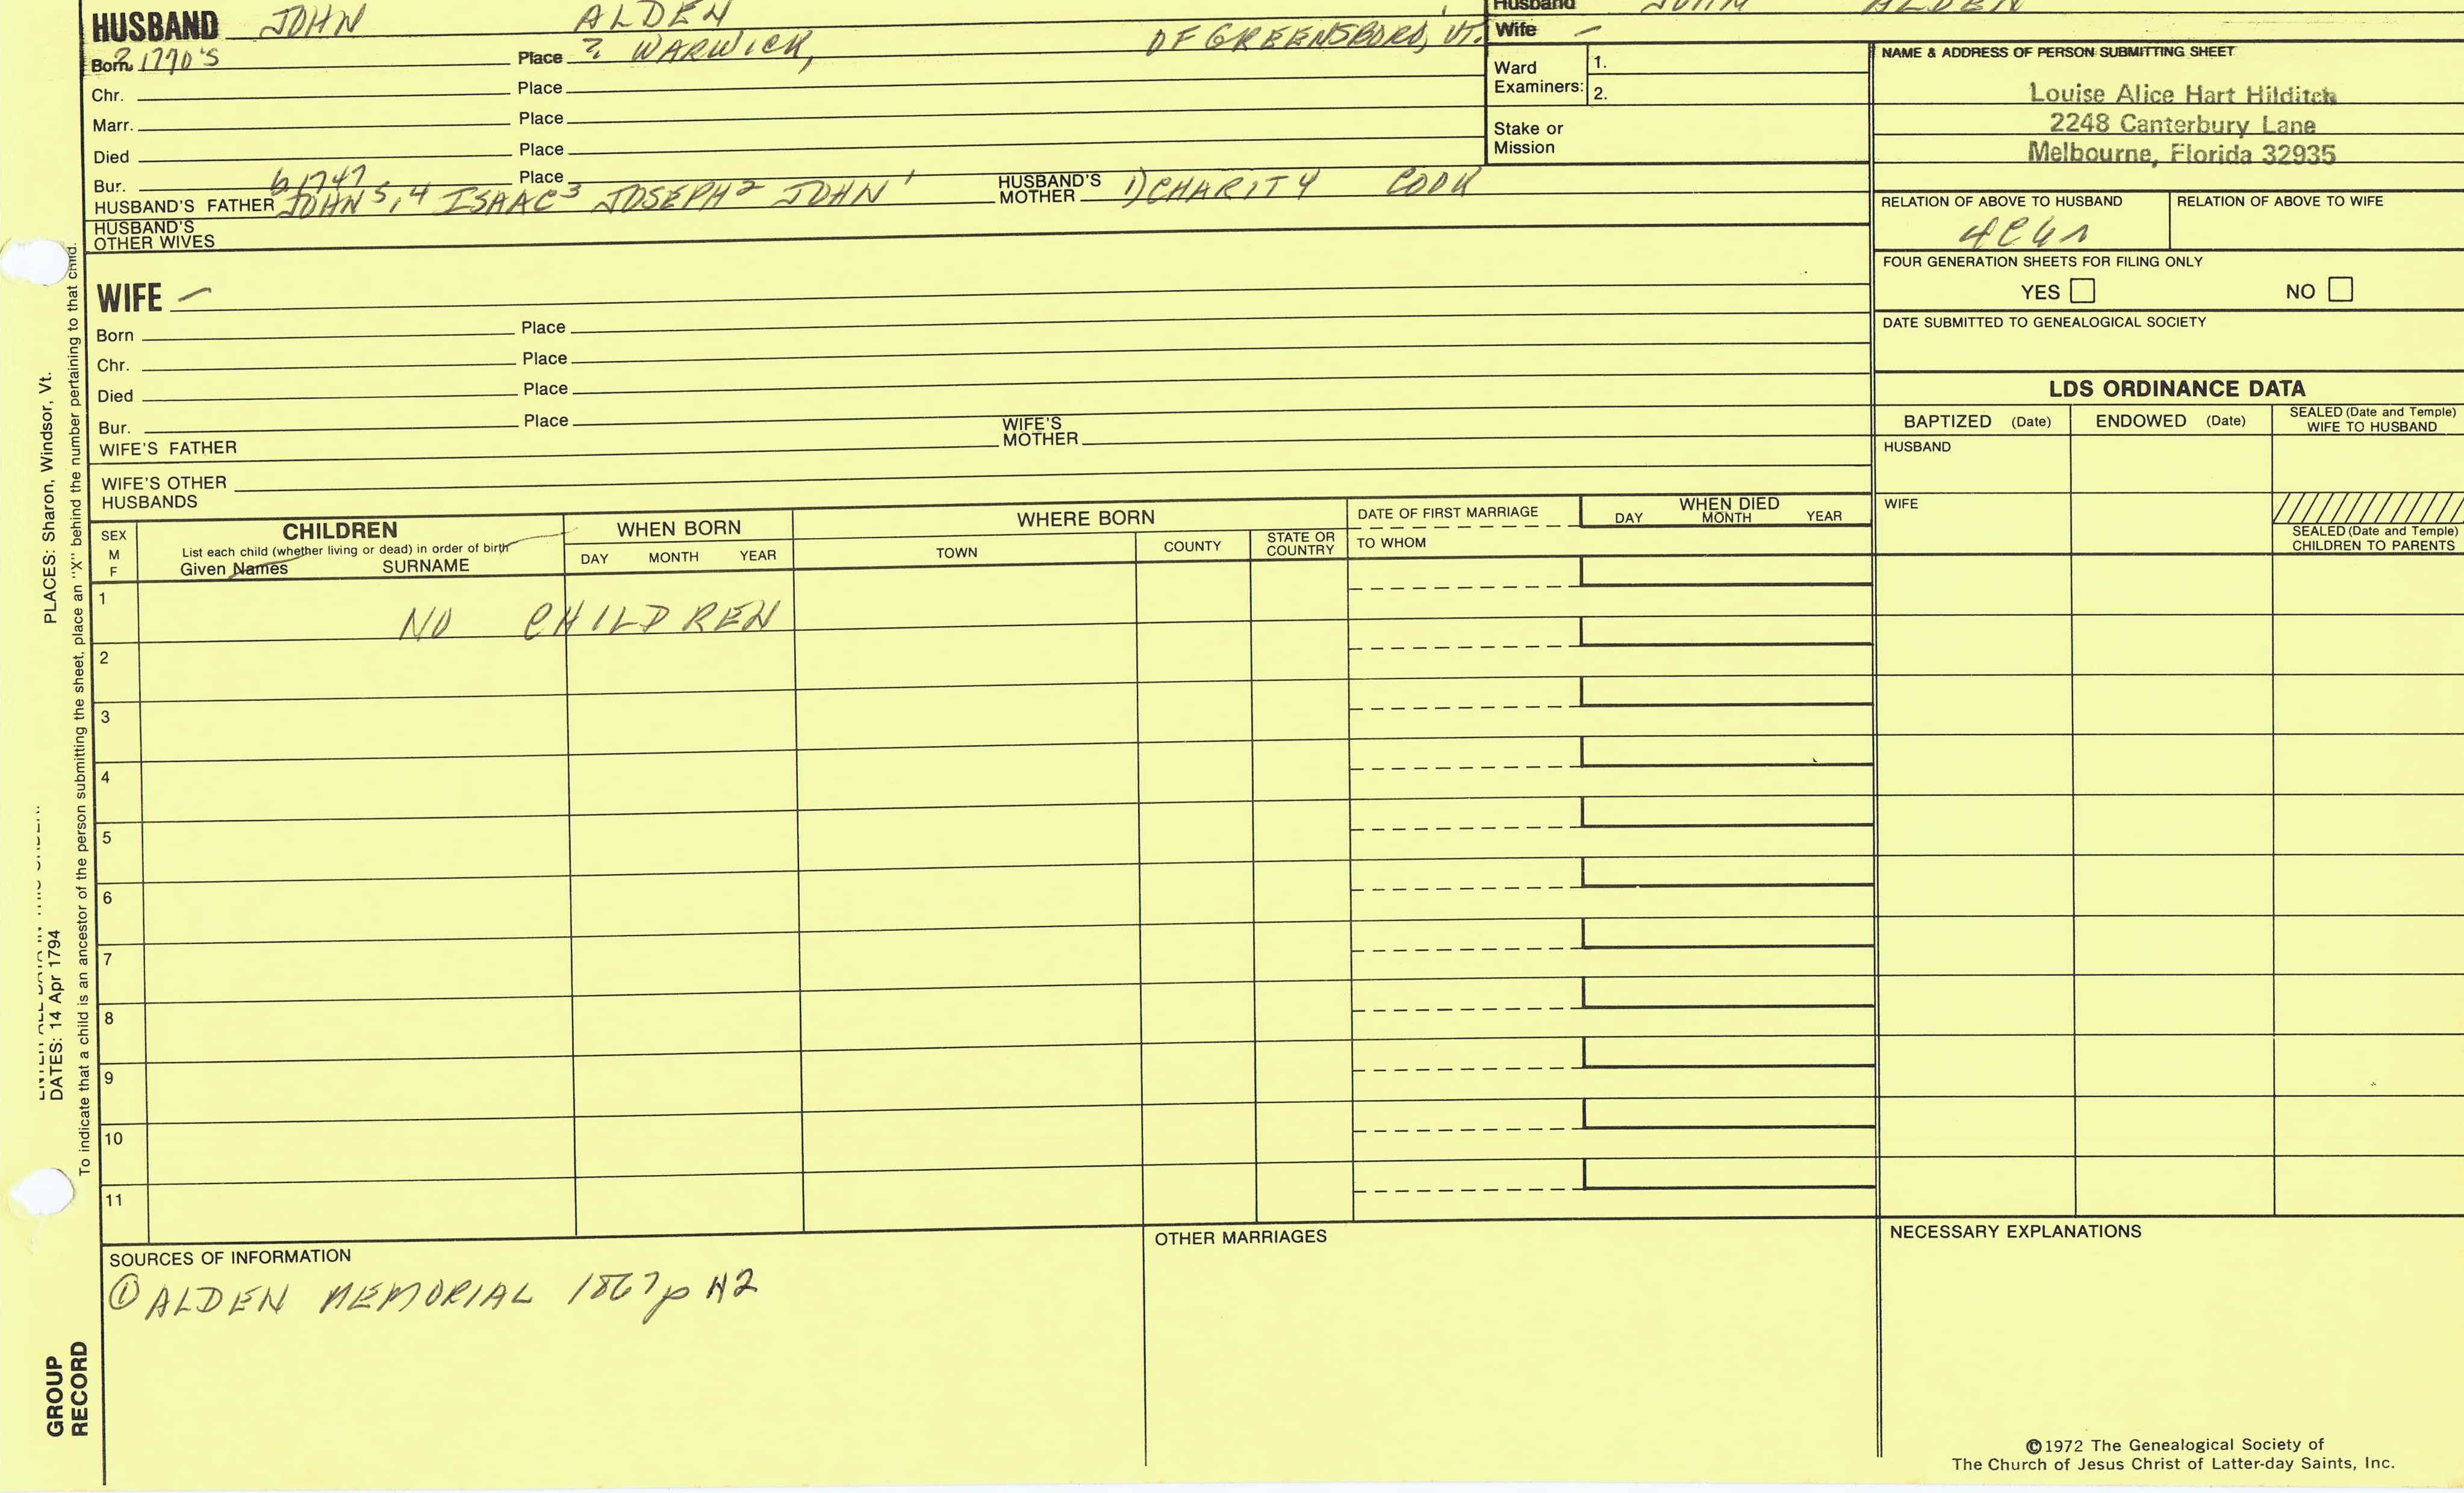 HUSBAND JOHN ALDEN
Born ? 1770'S Place ? WARWICK, OF GREENSBORO, VT.
Chr. Place
Marr. Place
Died Place
Bur. Place
b 1747
HUSBAND'S FATHER JOHN 5,4 ISAAC3 JOSEPH2 JOHN1 HUSBAND'S MOTHER 1) CHARITY COOK
HUSBAND'S OTHER WIVES
Husband JOHN ALDEN
Wife —
Ward Examiners: 1.
2.
Stake or Mission
NAME & ADDRESS OF PERSON SUBMITTING SHEET
Louise Alice Hart Hilditch
2248 Canterbury Lane
Melbourne, Florida 32935
RELATION OF ABOVE TO HUSBAND RELATION OF ABOVE TO WIFE
FOUR GENERATION SHEETS FOR FILING ONLY
YES NO
DATE SUBMITTED TO GENEALOGICAL SOCIETY
WIFE —
Born Place
Chr. Place
Died Place
Bur. Place
WIFE'S FATHER WIFE'S MOTHER
WIFE'S OTHER HUSBANDS
LDS ORDINANCE DATA
BAPTIZED (Date) ENDOWED (Date) SEALED (Date and Temple) WIFE TO HUSBAND
HUSBAND
WIFE
SEALED (Date and Temple) CHILDREN TO PARENTS
SEX M F
CHILDREN
List each child (whether living or dead) in order of birth
Given Names SURNAME
WHEN BORN
DAY MONTH YEAR
WHERE BORN
TOWN COUNTY STATE OR COUNTRY
DATE OF FIRST MARRIAGE
TO WHOM
WHEN DIED
DAY MONTH YEAR
1 NO CHILDREN
2
3
4
5
6
7
8
9
10
11
SOURCES OF INFORMATION
① ALDEN MEMORIAL 1867 p 42
OTHER MARRIAGES
NECESSARY EXPLANATIONS
©1972 The Genealogical Society of
The Church of Jesus Christ of Latter-day Saints, Inc.
PLACES: Sharon, Windsor, Vt.
DATES: 14 Apr 1794
To indicate that a child is an ancestor of the person submitting the sheet, place an "X" behind the number pertaining to that child.
GROUP
RECORD